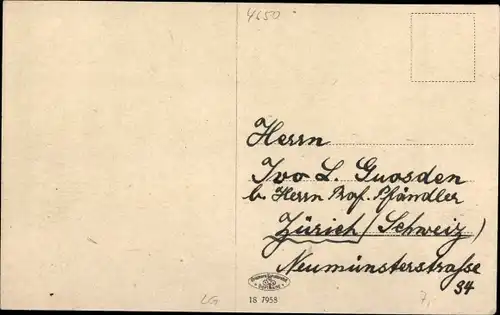 4650
Herrn
Ivo L. Guosden
b. Herrn Prof. Pfändler
Zürich (Schweiz)
Neumünsterstraße
34
LG
18 7958
7,